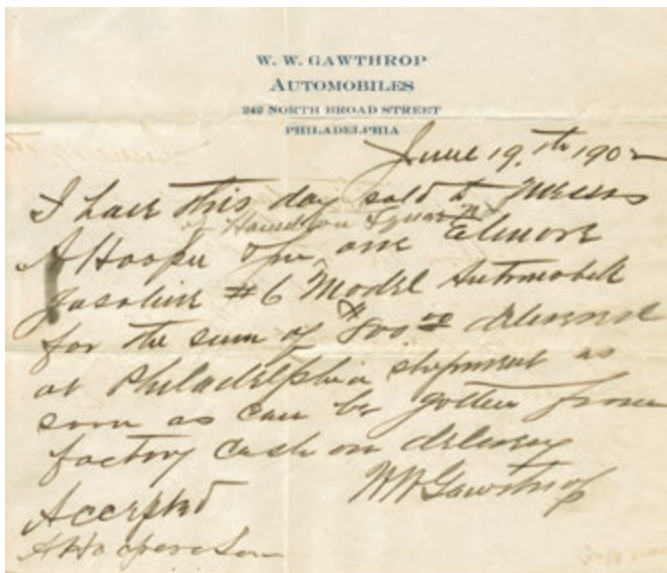 W. W. GAWTHROP
AUTOMOBILES
242 NORTH BROAD STREET
PHILADELPHIA
June 19th 1902
I have this day sold to Messrs
of Square
A Hooper & Son one Elmore
gasoline #6 Model Automobile
for the sum of $800.00 delivered
at Philadelphia shipment as
soon as can be gotten from
factory cash on delivery
WW Gawthrop
Accepted
A Hooper & Son